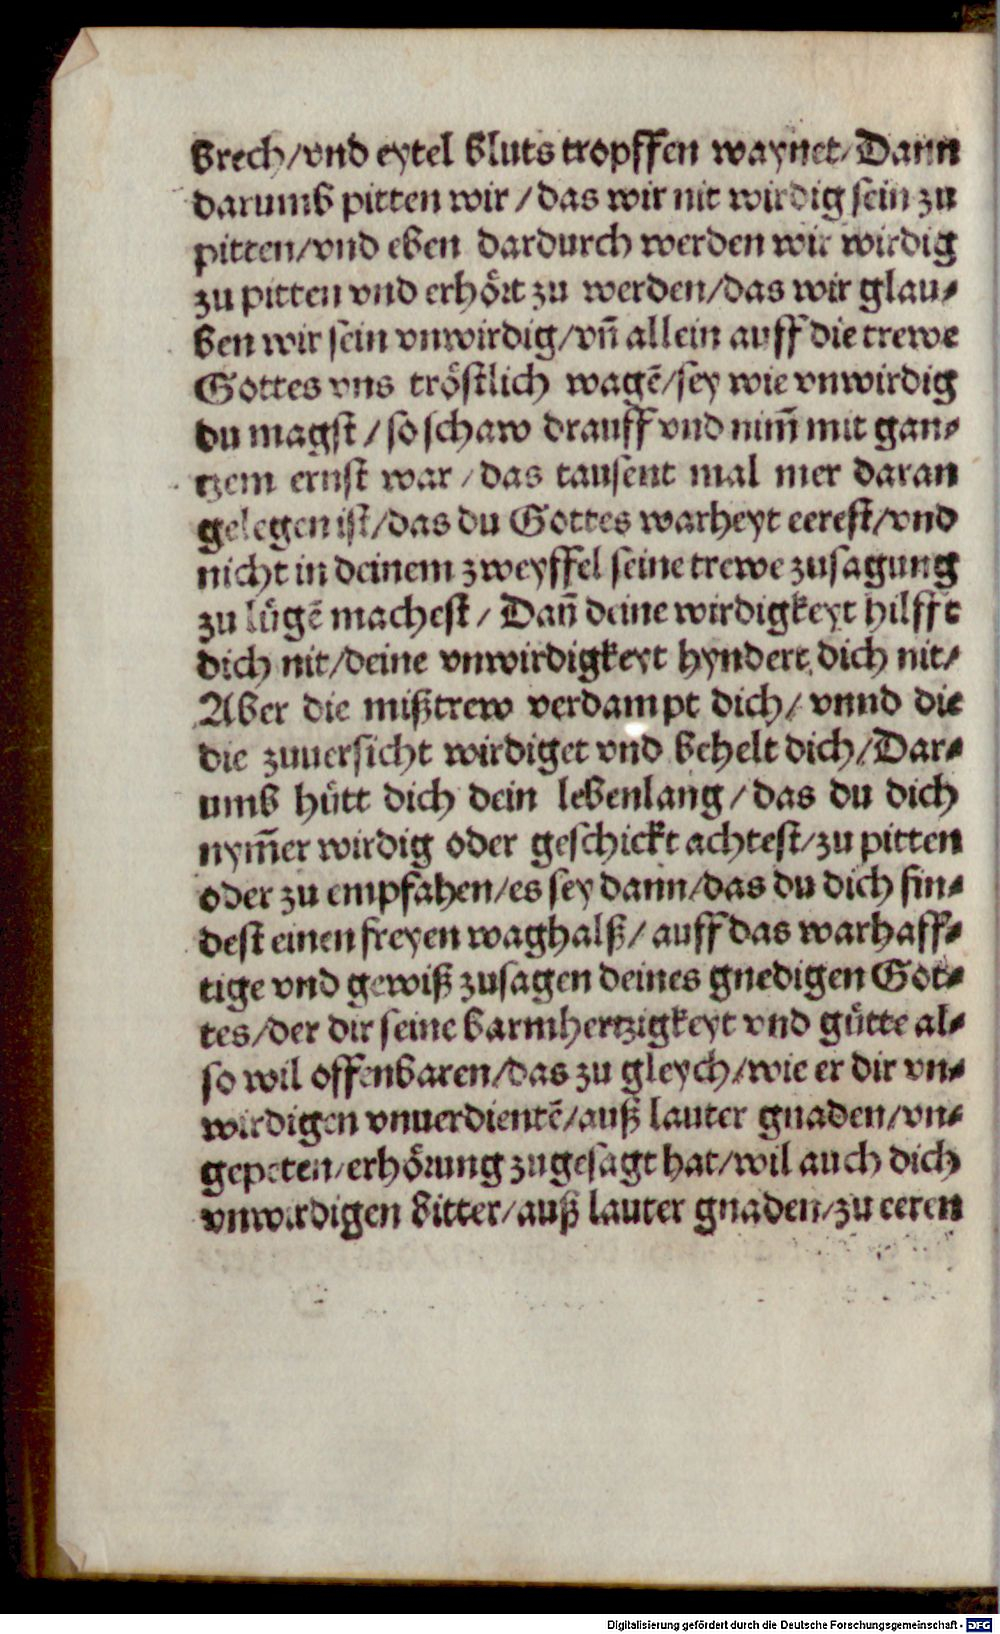 brech/vnd eytel bluts tropffen waynet/Dann
darumb pitten wir/das wir nit wirdig sein zu
pitten/vnd eben dardurch werden wir wirdig
zu pitten vnd erhört zu werden/das wir glau⸗
ben wir sein vnwirdig/vn̄ allein auff die trewe
Gottes vns tröstlich wagē/sey wie vnwirdig
du magst/so schaw drauff vnd nim̄ mit gan⸗
tzem ernst war/das tausent mal mer daran
gelegen ist/das du Gottes warheyt eerest/vnd
nicht in deinem zweyffel seine trewe zusagung
zu lügē machest/Dan̄ deine wirdigkeyt hilfft
dich nit/deine vnwirdigkeyt hyndert dich nit/
Aber die mißtrew verdampt dich/vnnd die
die zuuersicht wirdiget vnd behelt dich/Dar⸗
umb hütt dich dein lebenlang/das du dich
nym̄er wirdig oder geschickt achtest/zu pitten
oder zu empfahen/es sey dann/das du dich fin⸗
dest einen freyen waghalß/auff das warhaff⸗
tige vnd gewiß zusagen deines gnedigen Got⸗
tes/der dir seine barmhertzigkeyt vnd gütte al⸗
so wil offenbaren/das zu gleych/wie er dir vn⸗
wirdigen vnuerdientē/auß lauter gnaden/vn⸗
gepeten/erhörung zugesagt hat/wil auch dich
vnwirdigen bitter/auß lauter gnaden/zu eeren
Digitalisierung gefördert durch die Deutsche Forschungsgemeinschaft - DFG